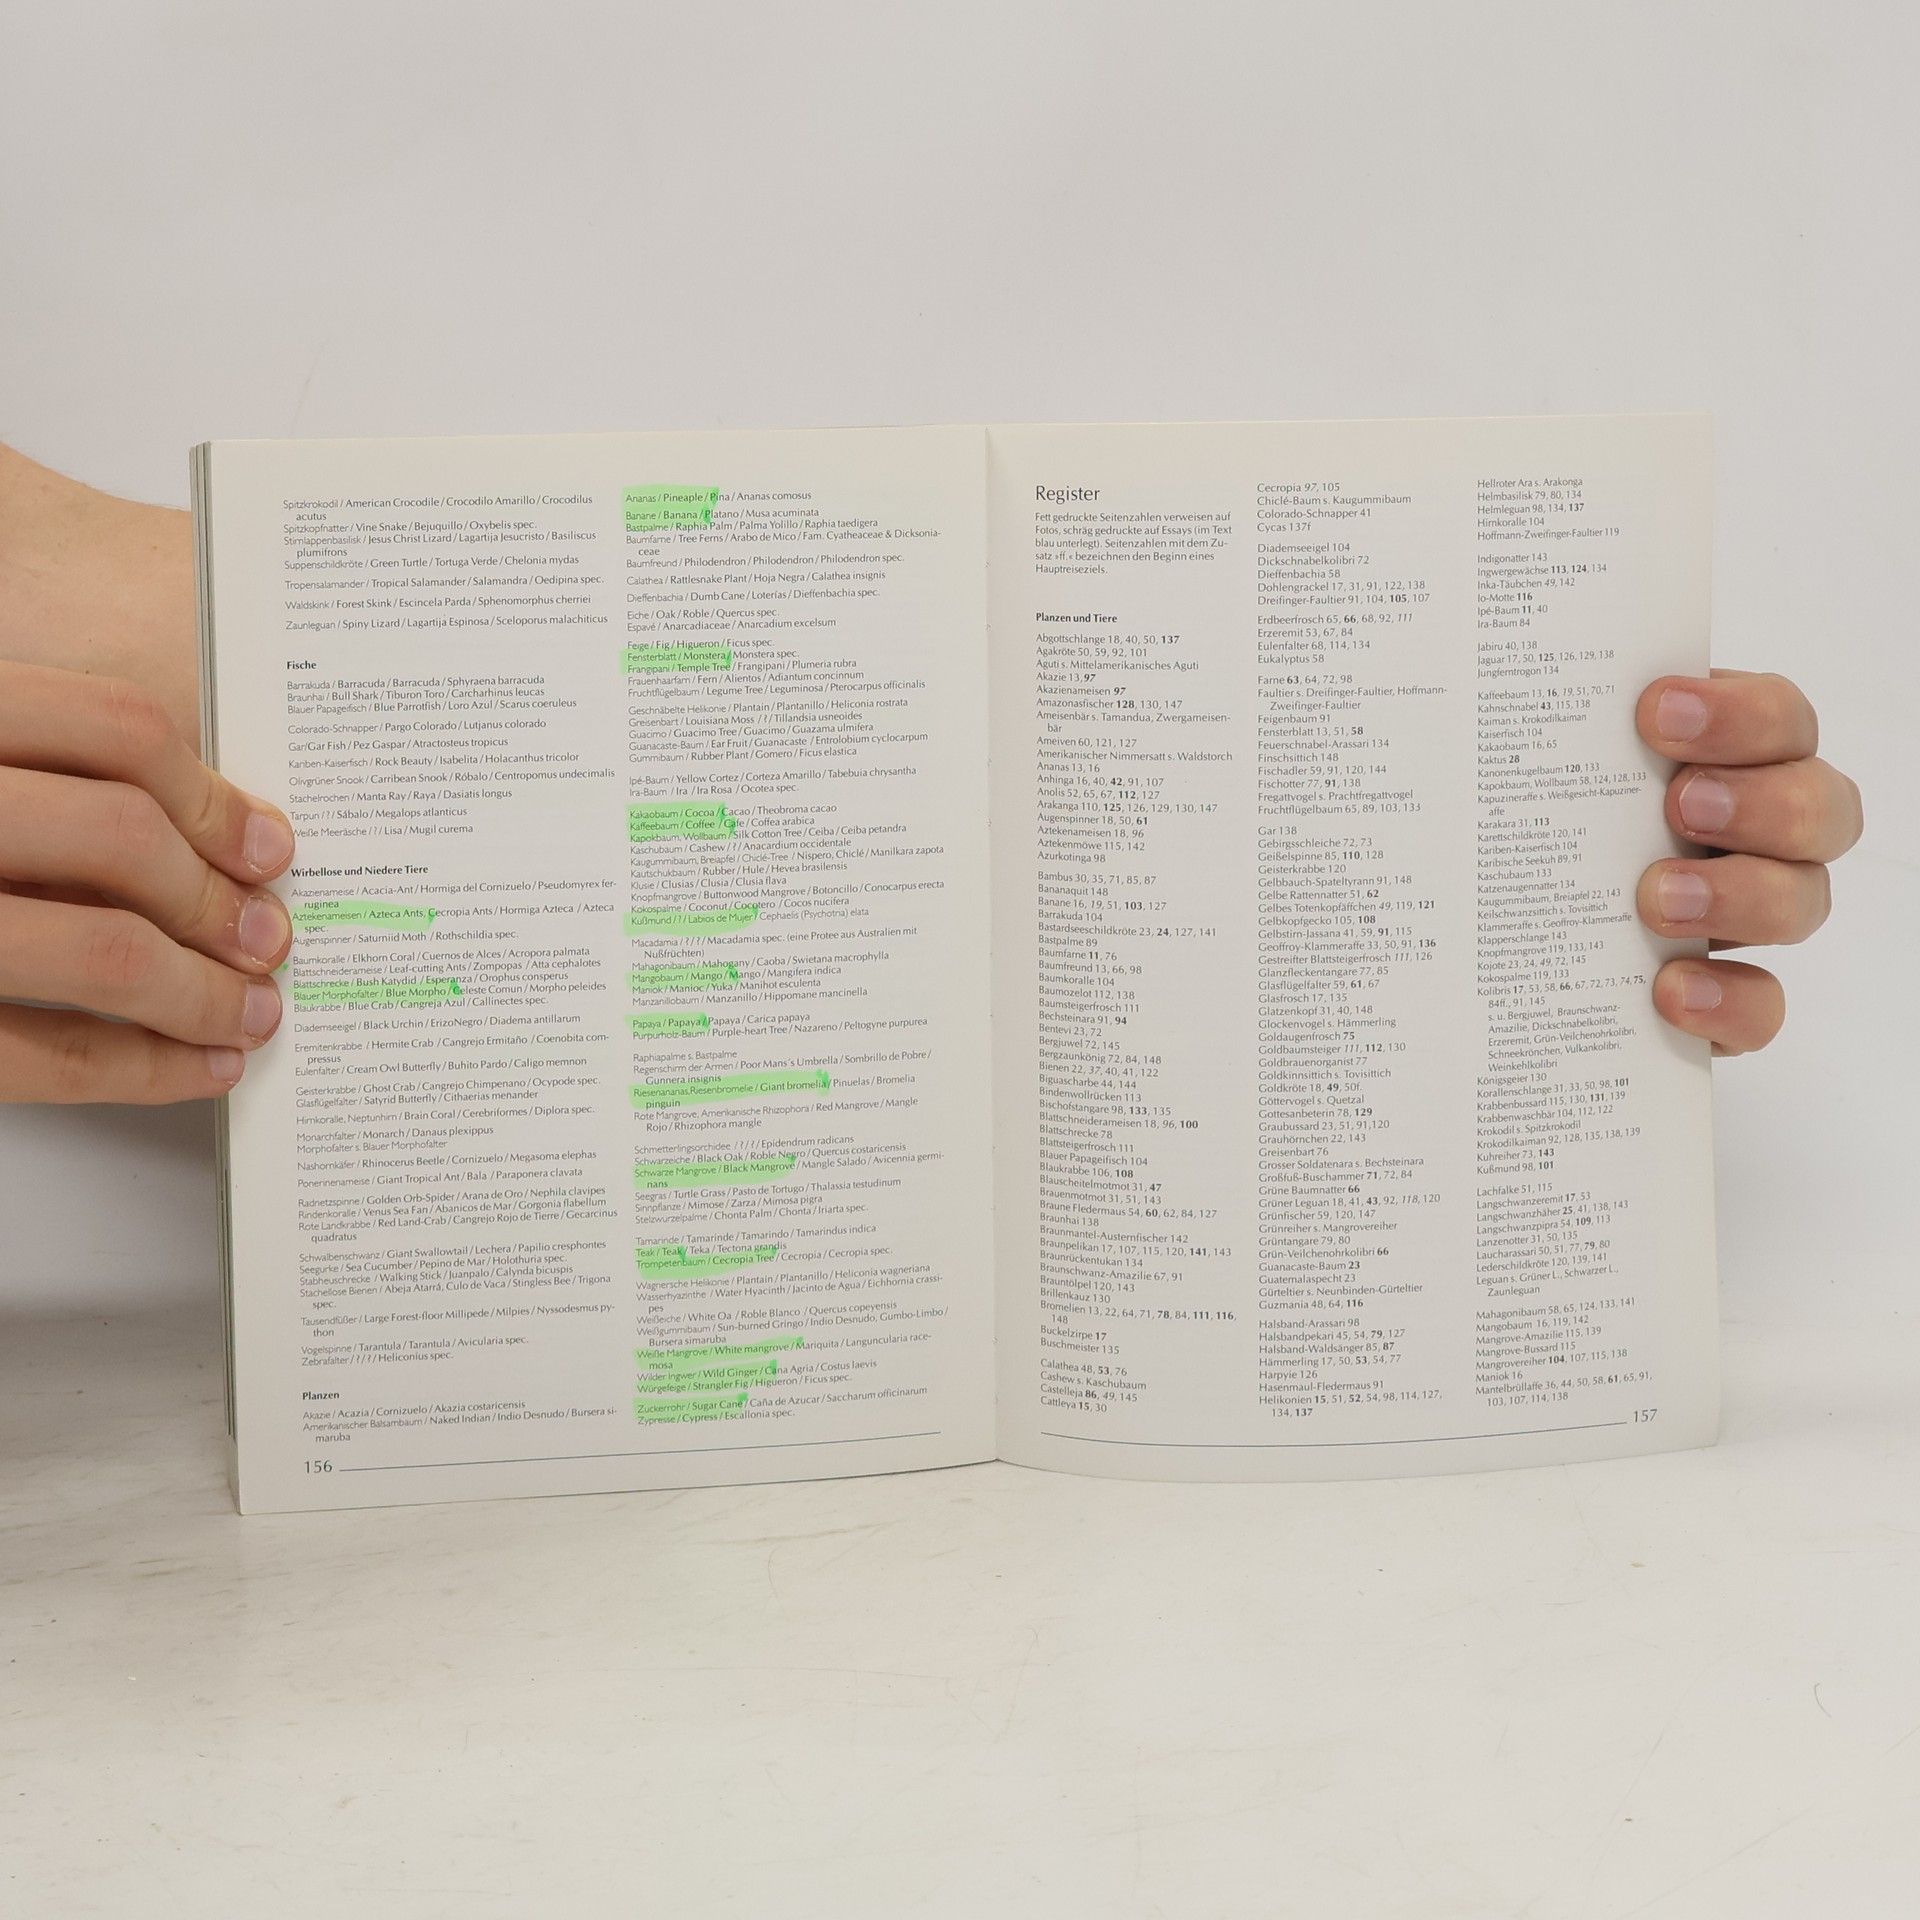 Spitzkrokodil / American Crocodile / Crocodilo Amarillo / Crocodilus
acutus
Spitzkopfnatter / Vine Snake / Bejuquillo / Oxybelis spec.
Stirnlappenbasilisk / Jesus Christ Lizard / Lagartija Jesucristo / Basiliscus
plumifrons
Suppenschildkröte / Green Turtle / Tortuga Verde / Chelonia mydas
Tropensalamander / Tropical Salamander / Salamandra / Oedipina spec.
Waldskink / Forest Skink / Escincela Parda / Sphenomorphus cherriei
Zaunleguan / Spiny Lizard / Lagartija Espinosa / Sceloporus malachiticus
Fische
Barrakuda / Barracuda / Barracuda / Sphyraena barracuda
Braunhai / Bull Shark / Tiburon Toro / Carcharhinus leucas
Blauer Papageifisch / Blue Parrotfish / Loro Azul / Scarus coeruleus
Colorado-Schnapper / Pargo Colorado / Lutjanus colorado
Gar/Gar Fish / Pez Gaspar / Atractosteus tropicus
Kariben-Kaiserfisch / Rock Beauty / Isabelita / Holacanthus tricolor
Olivgrüner Snook / Carribean Snook / Róbalo / Centropomus undecimalis
Stachelrochen / Manta Ray / Raya / Dasiatis longus
Tarpun / ? / Sábalo / Megalops atlanticus
Weiße Meeräsche / ? / Lisa / Mugil curema
Wirbellose und Niedere Tiere
Akazienameise / Acacia-Ant / Hormiga del Cornizuelo / Pseudomyrex fer-
ruginea
Aztekenameisen / Azteca Ants, Cecropia Ants / Hormiga Azteca / Azteca
spec.
Augenspinner / Saturniid Moth / Rothschildia spec.
Baumkoralle / Elkhorn Coral / Cuernos de Alces / Acropora palmata
Blattschneiderameise / Leaf-cutting Ants / Zompopas / Atta cephalotes
Blattschrecke / Bush Katydid / Esperanza / Orophus consperus
Blauer Morphofalter / Blue Morpho / Celeste Comun / Morpho peleides
Blaukrabbe / Blue Crab / Cangreja Azul / Callinectes spec.
Diademseeigel / Black Urchin / ErizoNegro / Diadema antillarum
Eremitenkrabbe / Hermite Crab / Cangrejo Ermitaño / Coenobita com-
pressus
Eulenfalter / Cream Owl Butterfly / Buhito Pardo / Caligo memnon
Geisterkrabbe / Ghost Crab / Cangrejo Chimpenano / Ocypode spec.
Glasflügelfalter / Satyrid Butterfly / Cithaerias menander
Hirnkoralle, Neptunhirn / Brain Coral / Cerebriformes / Diplora spec.
Monarchfalter / Monarch / Danaus plexippus
Morphofalter s. Blauer Morphofalter
Nashornkäfer / Rhinocerus Beetle / Cornizuelo / Megasoma elephas
Ponerinenameise / Giant Tropical Ant / Bala / Paraponera clavata
Radnetzspinne / Golden Orb-Spider / Arana de Oro / Nephila clavipes
Rindenkoralle / Venus Sea Fan / Abanicos de Mar / Gorgonia flabellum
Rote Landkrabbe / Red Land-Crab / Cangrejo Rojo de Tierre / Gecarcinus
quadratus
Schwalbenschwanz / Giant Swallowtail / Lechera / Papilio cresphontes
Seegurke / Sea Cucumber / Pepino de Mar / Holothuria spec.
Stabheuschrecke / Walking Stick / Juanpalo / Calynda bicuspis
Stachellose Bienen / Abeja Atarrá, Culo de Vaca / Stingless Bee / Trigona
spec.
Tausendfüßer / Large Forest-floor Millipede / Milpies / Nyssodesmus py-
thon
Vogelspinne / Tarantula / Tarantula / Avicularia spec.
Zebrafalter / ? / ? / Heliconius spec.
Planzen
Akazie / Acazia / Cornizuelo / Akazia costaricensis
Amerikanischer Balsambaum / Naked Indian / Indio Desnudo / Bursera si-
maruba
156
Ananas / Pineaple / Pina / Ananas comosus
Banane / Banana / Platano / Musa acuminata
Bastpalme / Raphia Palm / Palma Yolillo / Raphia taedigera
Baumfarne / Tree Ferns / Arabo de Mico / Fam. Cyatheaceae & Dicksonia-
ceae
Baumfreund / Philodendron / Philodendron / Philodendron spec.
Calathea / Rattlesnake Plant / Hoja Negra / Calathea insignis
Dieffenbachia / Dumb Cane / Loterías / Dieffenbachia spec.
Eiche / Oak / Roble / Quercus spec.
Espavé / Anarcadiaceae / Anarcadium excelsum
Feige / Fig / Higueron / Ficus spec.
Fensterblatt / Monstera / Monstera spec.
Frangipani / Temple Tree / Frangipani / Plumeria rubra
Frauenhaarfarn / Fern / Alientos / Adiantum concinnum
Fruchtflügelbaum / Legume Tree / Leguminosa / Pterocarpus officinalis
Geschnäbelte Helikonie / Plantain / Plantanillo / Heliconia rostrata
Greisenbart / Louisiana Moss / ? / Tillandsia usneoides
Guacimo / Guacimo Tree / Guacimo / Guazama ulmifera
Guanacaste-Baum / Ear Fruit / Guanacaste / Entrolobium cyclocarpum
Gummibaum / Rubber Plant / Gomero / Ficus elastica
Ipé-Baum / Yellow Cortez / Corteza Amarillo / Tabebuia chrysantha
Ira-Baum / Ira / Ira Rosa / Ocotea spec.
Kakaobaum / Cocoa / Cacao / Theobroma cacao
Kaffeebaum / Coffee / Cafe / Coffea arabica
Kapokbaum, Wollbaum / Silk Cotton Tree / Ceiba / Ceiba petandra
Kaschubaum / Cashew / ? / Anacardium occidentale
Kaugummibaum, Breiapfel / Chiclé-Tree / Nispero, Chiclé / Manilkara zapota
Kautschukbaum / Rubber / Hule / Hevea brasilensis
Klusie / Clusias / Clusia / Clusia flava
Knopfmangrove / Buttonwood Mangrove / Botoncillo / Conocarpus erecta
Kokospalme / Coconut / Cocotero / Cocos nucifera
Kußmund / ? / Labios de Mujer / Cephaelis (Psychotria) elata
Macadamia / ? / ? / Macadamia spec. (eine Protee aus Australien mit
Nußfrüchten)
Mahagonibaum / Mahogany / Caoba / Swietana macrophylla
Mangobaum / Mango / Mango / Mangifera indica
Maniok / Manioc / Yuka / Manihot esculenta
Manzanillobaum / Manzanillo / Hippomane mancinella
Papaya / Papaya / Papaya / Carica papaya
Purpurholz-Baum / Purple-heart Tree / Nazareno / Peltogyne purpurea
Raphiapalme s. Bastpalme
Regenschirm der Armen / Poor Mans´s Umbrella / Sombrillo de Pobre /
Gunnera insignis
Riesenananas,Riesenbromelie / Giant bromelia / Pinuelas / Bromelia
pinguin
Rote Mangrove, Amerikanische Rhizophora / Red Mangrove / Mangle
Rojo / Rhizophora mangle
Schmetterlingsorchidee / ? / ? / Epidendrum radicans
Schwarzeiche / Black Oak / Roble Negro / Quercus costaricensis
Schwarze Mangrove / Black Mangrove / Mangle Salado / Avicennia germi-
nans
Seegras / Turtle Grass / Pasto de Tortugo / Thalassia testudinum
Sinnpflanze / Mimose / Zarza / Mimosa pigra
Stelzwurzelpalme / Chonta Palm / Chonta / Iriarta spec.
Tamarinde / Tamarinde / Tamarindo / Tamarindus indica
Teak / Teak / Teka / Tectona grandis
Trompetenbaum / Cecropia Tree / Cecropia / Cecropia spec.
Wagnersche Helikonie / Plantain / Plantanillo / Heliconia wagneriana
Wasserhyazinthe / Water Hyacinth / Jacinto de Agua / Eichhornia crassi-
pes
Weißeiche / White Oa / Roble Blanco / Quercus copeyensis
Weißgummibaum / Sun-burned Gringo / Indio Desnudo, Gumbo-Limbo /
Bursera simaruba
Weiße Mangrove / White mangrove / Mariquita / Languncularia race-
mosa
Wilder Ingwer / Wild Ginger / Cana Agria / Costus laevis
Würgefeige / Strangler Fig / Higueron / Ficus spec.
Zuckerrohr / Sugar Cane / Caña de Azucar / Saccharum officinarum
Zypresse / Cypress / Escallonia spec.
Register
Fett gedruckte Seitenzahlen verweisen auf
Fotos, schräg gedruckte auf Essays (im Text
blau unterlegt). Seitenzahlen mit dem Zu-
satz »ff.« bezeichnen den Beginn eines
Hauptreiseziels.
Planzen und Tiere
Abgottschlange 18, 40, 50, 137
Agakröte 50, 59, 92, 101
Aguti s. Mittelamerikanisches Aguti
Akazie 13, 97
Akazienameisen 97
Amazonasfischer 128, 130, 147
Ameisenbär s. Tamandua, Zwergameisen-
bär
Ameiven 60, 121, 127
Amerikanischer Nimmersatt s. Waldstorch
Ananas 13, 16
Anhinga 16, 40, 42, 91, 107
Anolis 52, 65, 67, 112, 127
Arakanga 110, 125, 126, 129, 130, 147
Augenspinner 18, 50, 61
Aztekenameisen 18, 96
Aztekenmöwe 115, 142
Azurkotinga 98
Bambus 30, 35, 71, 85, 87
Bananaquit 148
Banane 16, 19, 51, 103, 127
Barrakuda 104
Bastardseeschildkröte 23, 24, 127, 141
Bastpalme 89
Baumfarne 11, 76
Baumfreund 13, 66, 98
Baumkoralle 104
Baumozelot 112, 138
Baumsteigerfrosch 111
Bechsteinara 91, 94
Bentevi 23, 72
Bergjuwel 72, 145
Bergzaunkönig 72, 84, 148
Bienen 22, 37, 40, 41, 122
Biguascharbe 44, 144
Bindenwollrücken 113
Bischofstangare 98, 133, 135
Blattschneiderameisen 18, 96, 100
Blattschrecke 78
Blattsteigerfrosch 111
Blauer Papageifisch 104
Blaukrabbe 106, 108
Blauscheitelmotmot 31, 47
Brauenmotmot 31, 51, 143
Braune Fledermaus 54, 60, 62, 84, 127
Braunhai 138
Braunmantel-Austernfischer 142
Braunpelikan 17, 107, 115, 120, 141, 143
Braunrückentukan 134
Braunschwanz-Amazilie 67, 91
Brauntölpel 120, 143
Brillenkauz 130
Bromelien 13, 22, 64, 71, 78, 84, 111, 116,
148
Buckelzirpe 17
Buschmeister 135
Calathea 48, 53, 76
Cashew s. Kaschubaum
Castelleja 86, 49, 145
Cattleya 15, 30
Cecropia 97, 105
Chiclé-Baum s. Kaugummibaum
Colorado-Schnapper 41
Cycas 137f
Diademseeigel 104
Dickschnabelkolibri 72
Dieffenbachia 58
Dohlengrackel 17, 31, 91, 122, 138
Dreifinger-Faultier 91, 104, 105, 107
Erdbeerfrosch 65, 66, 68, 92, 111
Erzeremit 53, 67, 84
Eulenfalter 68, 114, 134
Eukalyptus 58
Farne 63, 64, 72, 98
Faultier s. Dreifinger-Faultier, Hoffmann-
Zweifinger-Faultier
Feigenbaum 91
Fensterblatt 13, 51, 58
Feuerschnabel-Arassari 134
Finschsittich 148
Fischadler 59, 91, 120, 144
Fischotter 77, 91, 138
Fregattvogel s. Prachtfregattvogel
Fruchtflügelbaum 65, 89, 103, 133
Gar 138
Gebirgsschleiche 72, 73
Geißelspinne 85, 110, 128
Geisterkrabbe 120
Gelbbauch-Spateltyrann 91, 148
Gelbe Rattennatter 51, 62
Gelbes Totenkopfäffchen 49, 119, 121
Gelbkopfgecko 105, 108
Gelbstirn-Jassana 41, 59, 91, 115
Geoffroy-Klammeraffe 33, 50, 91, 136
Gestreifter Blattsteigerfrosch 111, 126
Glanzfleckentangare 77, 85
Glasflügelfalter 59, 61, 67
Glasfrosch 17, 135
Glatzenkopf 31, 40, 148
Glockenvogel s. Hämmerling
Goldaugenfrosch 75
Goldbaumsteiger 111, 112, 130
Goldbrauenorganist 77
Goldkinnsittich s. Tovisittich
Goldkröte 18, 49, 50f.
Göttervogel s. Quetzal
Gottesanbeterin 78, 129
Graubussard 23, 51, 91,120
Grauhörnchen 22, 143
Greisenbart 76
Grosser Soldatenara s. Bechsteinara
Großfuß-Buschammer 71, 72, 84
Grüne Baumnatter 66
Grüner Leguan 18, 41, 43, 92, 118, 120
Grünfischer 59, 120, 147
Grünreiher s. Mangrovereiher
Grüntangare 79, 80
Grün-Veilchenohrkolibri 66
Guanacaste-Baum 23
Guatemalaspecht 23
Gürteltier s. Neunbinden-Gürteltier
Guzmania 48, 64, 116
Halsband-Arassari 98
Halsbandpekari 45, 54, 79, 127
Halsband-Waldsänger 85, 87
Hämmerling 17, 50, 53, 54, 77
Harpyie 126
Hasenmaul-Fledermaus 91
Helikonien 15, 51, 52, 54, 98, 114, 127,
134, 137
Hellroter Ara s. Arakonga
Helmbasilisk 79, 80, 134
Helmleguan 98, 134, 137
Hirnkoralle 104
Hoffmann-Zweifinger-Faultier 119
Indigonatter 143
Ingwergewächse 113, 124, 134
Inka-Täubchen 49, 142
Io-Motte 116
Ipé-Baum 11, 40
Ira-Baum 84
Jabiru 40, 138
Jaguar 17, 50, 125, 126, 129, 138
Jungferntrogon 134
Kaffeebaum 13, 16, 19, 51, 70, 71
Kahnschnabel 43, 115, 138
Kaiman s. Krokodilkaiman
Kaiserfisch 104
Kakaobaum 16, 65
Kaktus 28
Kanonenkugelbaum 120, 133
Kapokbaum, Wollbaum 58, 124, 128, 133
Kapuzineraffe s. Weißgesicht-Kapuziner-
affe
Karakara 31, 113
Karettschildkröte 120, 141
Kariben-Kaiserfisch 104
Karibische Seekuh 89, 91
Kaschubaum 133
Katzenaugennatter 134
Kaugummibaum, Breiapfel 22, 143
Keilschwanzsittich s. Tovisittich
Klammeraffe s. Geoffroy-Klammeraffe
Klapperschlange 143
Knopfmangrove 119, 133, 145
Kojote 23, 24, 49, 72, 145
Kokospalme 119, 133
Kolibris 17, 53, 58, 66, 67, 72, 73, 74, 75,
84ff., 91, 145
s. u. Bergjuwel, Braunschwanz-
Amazilie, Dickschnabelkolibri,
Erzeremit, Grün-Veilchenohrkolibri,
Schneekrönchen, Vulkankolibri,
Weinkehlkolibri
Königsgeier 130
Korallenschlange 31, 33, 50, 98, 101
Krabbenbussard 115, 130, 131, 139
Krabbenwaschbär 104, 112, 122
Krokodil s. Spitzkrokodil
Krokodilkaiman 92, 128, 135, 138, 139
Kuhreiher 73, 143
Kußmund 98, 101
Lachfalke 51, 115
Langschwanzeremit 17, 53
Langschwanzhäher 25, 41, 138, 143
Langschwanzpipra 54, 109, 113
Lanzenotter 31, 50, 135
Laucharassari 50, 51, 77, 79, 80
Lederschildkröte 120, 139, 141
Leguan s. Grüner L., Schwarzer L.,
Zaunleguan
Mahagonibaum 58, 65, 124, 133, 141
Mangobaum 16, 119, 142
Mangrove-Amazilie 115, 139
Mangrove-Bussard 115
Mangrovereiher 104, 107, 115, 138
Maniok 16
Mantelbrüllaffe 36, 44, 50, 58, 61, 65, 91,
103, 107, 114, 138
157